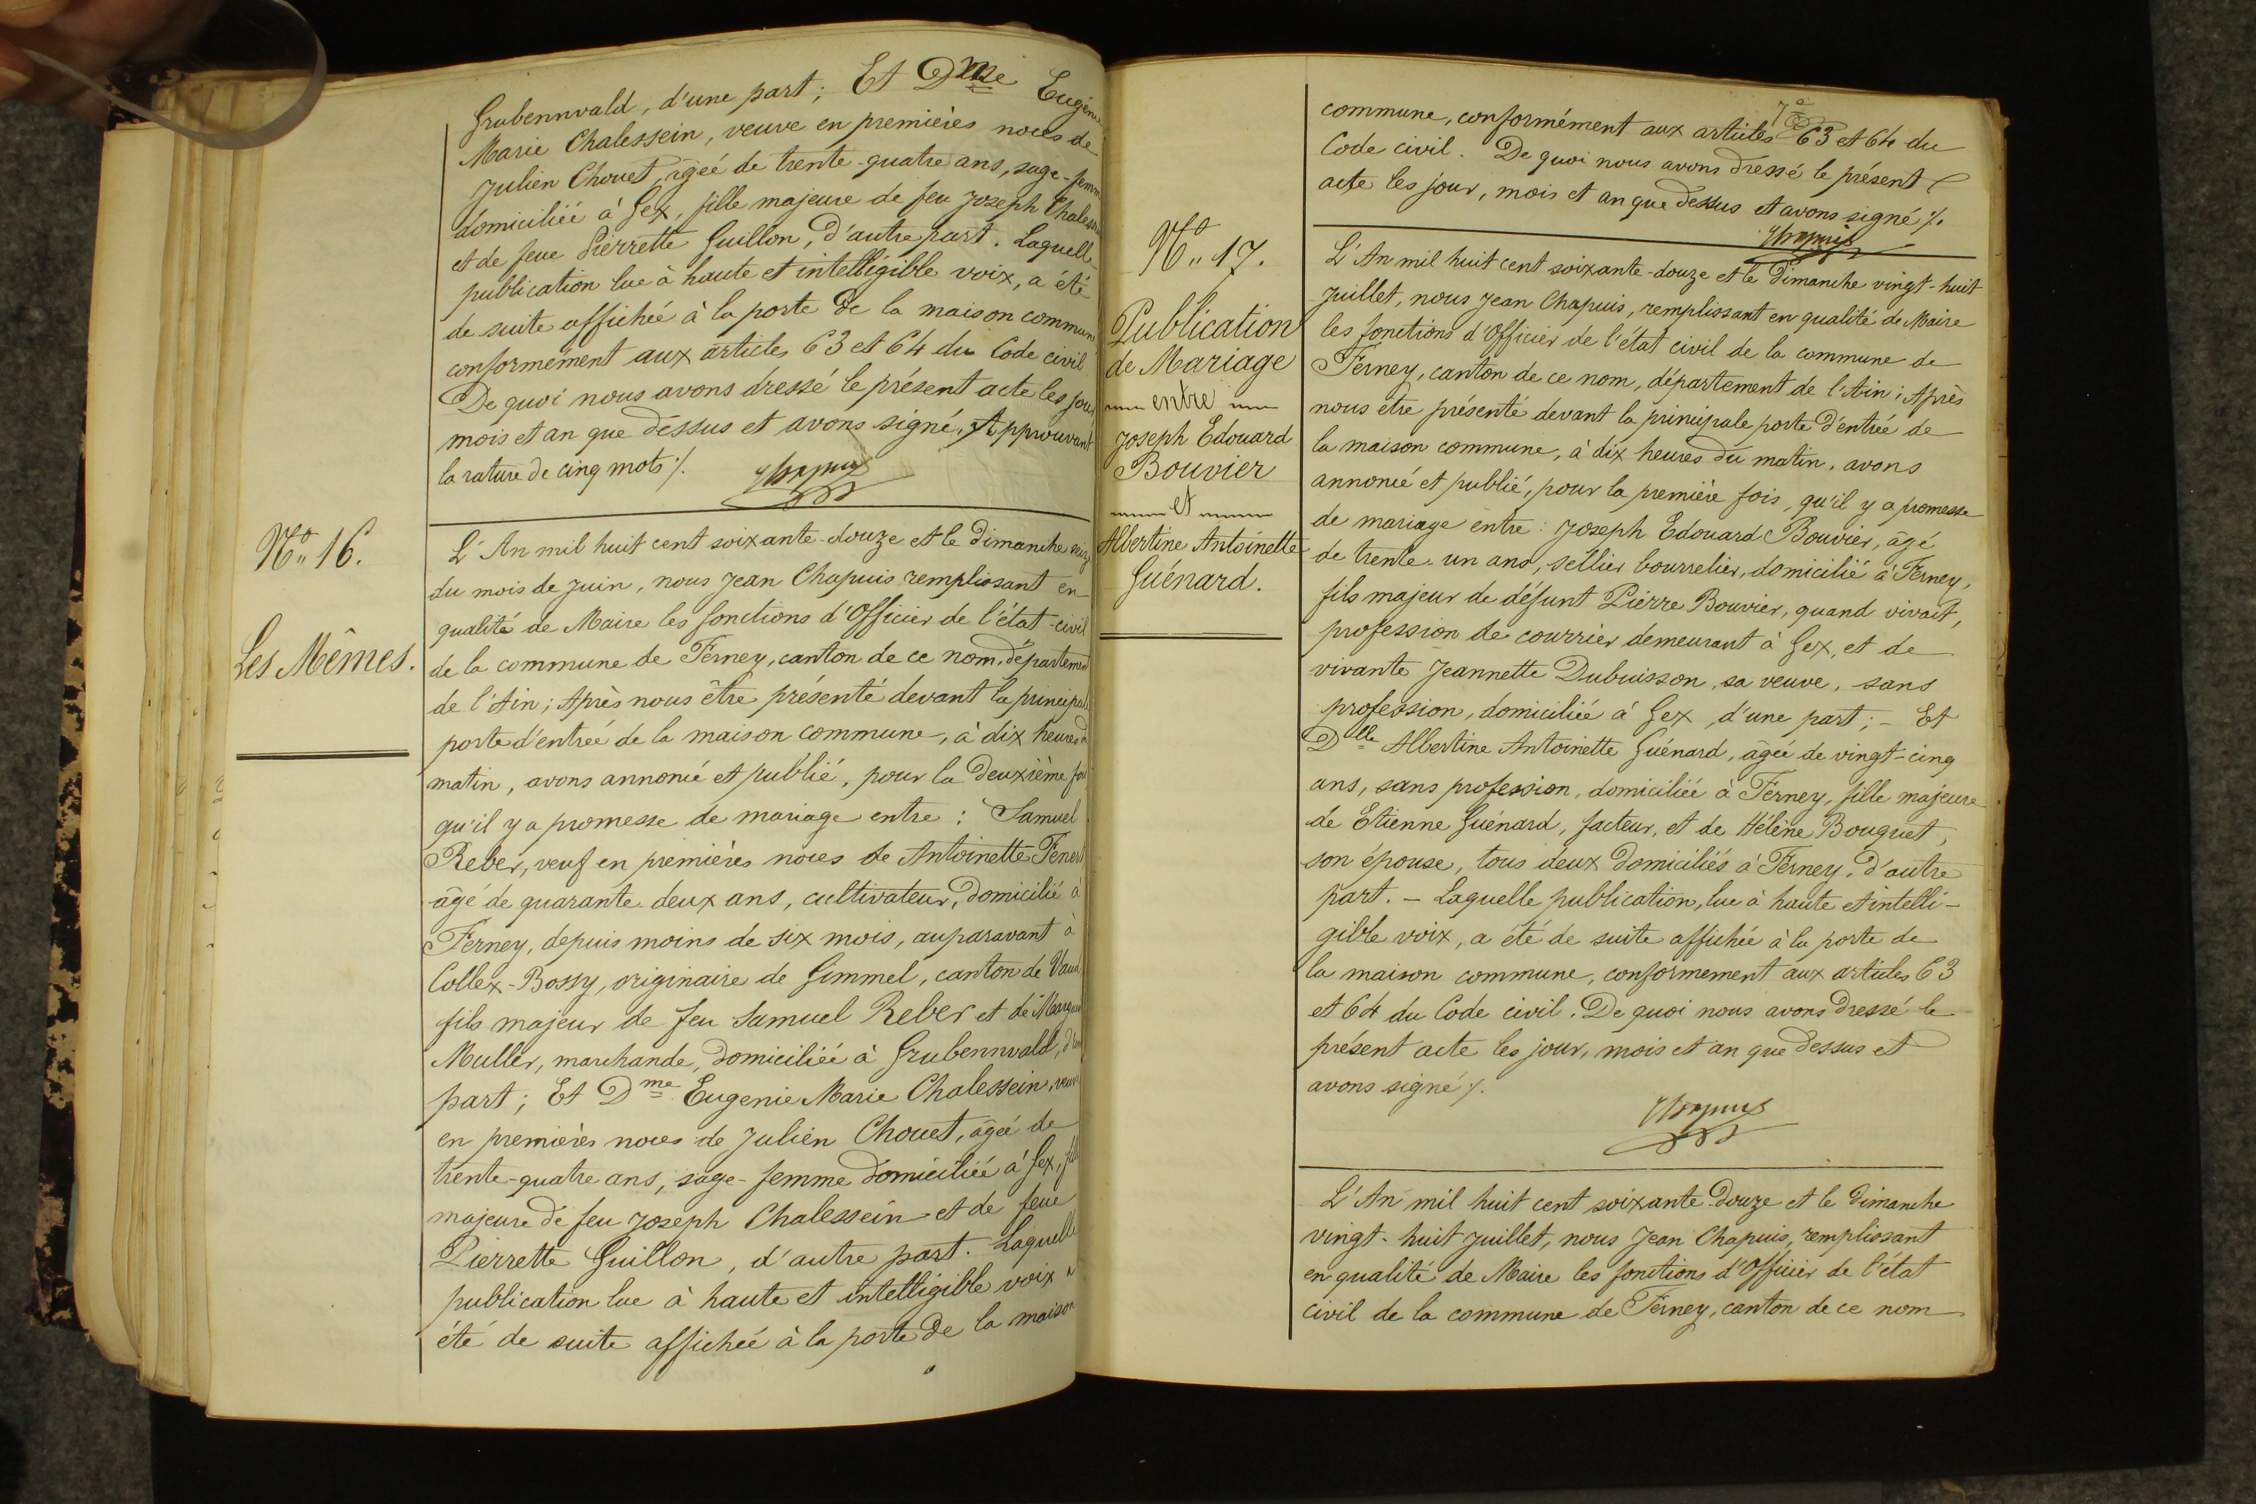 Grubennvald, d'une part; Et Dme Eugénie
Marie Chalessein, veuve en premières noces de
Julien Chouet, âgée de trente-quatre ans, sage-femme
domiciliée à Gex, fille majeure de feu Joseph Chalessein
et de feue Pierrette Guillon, d'autre part. Laquelle
publication lue à haute et intelligible voix, a été
de suite affichée à la porte de la maison commune
conformément aux articles 63 et 64 du Code civil
De quoi nous avons dressé le présent acte les jour
mois et an que dessus et avons signé, Approuvant
la rature de cinq mots ./.
Chapuis
Nº 16.
Les Mêmes.
L'An mil huit cent soixante-douze et le Dimanche seize
du mois de Juin, nous Jean Chapuis remplissant en
qualité de Maire les fonctions d'Officier de l'état-civil
de la commune de Ferney, canton de ce nom, département
de l'Ain; Après nous être présenté devant la principale
porte d'entrée de la maison commune, à dix heures d
matin, avons annoncé et publié, pour la deuxième fois
qu'il y a promesse de mariage entre : Samuel
Reber, veuf en premières noces de Antoinette
âgé de quarante-deux ans, cultivateur, domicilié à
Ferney, depuis moins de six mois, auparavant à
Collex-Bossy, originaire de Gimmel, canton de Vaud
fils majeur de feu Samuel Reber et de
Muller, marchande, domiciliée à Grubennvald, d'une
part; Et Dme Eugenie Marie Chalessein, veuve
en premières noces de Julien Chouet, âgée de
trente-quatre ans, sage-femme domiciliée à Gex, fille
majeure de feu Joseph Chalessein et de feue
Pierrette Guillon, d'autre part. Laquelle
publication lue à haute et intelligible voix a
été de suite affichée à la porte de la maison
commune, conformément aux articles 63 et 64 du
Code civil. De quoi nous avons dressé le présent
acte les jour, mois et an que dessus et avons signé ./.
Chapuis
Nº 17.
Publication
de Mariage
entre
Joseph Edouard
Bouvier
et
Albertine Antoinette
Guénard.
L'An mil huit cent soixante-douze et le Dimanche vingt-huit
Juillet, nous Jean Chapuis, remplissant en qualité de Maire
les fonctions d'Officier de l'état civil de la commune de
Ferney, canton de ce nom, département de l'Ain; Après
nous etre présenté devant la principale porte d'entrée de
la maison commune, à dix heures du matin, avons
annoncé et publié, pour la première fois, qu'il y a promesse
de mariage entre : Joseph Edouard Bouvier, âgé
de trente-un ans, sellier bourrelier, domicilié à Ferney,
fils majeur de défunt Pierre Bouvier, quand vivait,
profession de courrier demeurant à Gex, et de
vivante Jeannette Dubuisson, sa veuve, sans
profession, domiciliée à Gex, d'une part; - Et
Dlle Albertine Antoinette Guénard, âgée de vingt-cinq
ans, sans profession, domiciliée à Ferney, fille majeure
de Etienne Guénard, facteur, et de Hélène Bouquet,
son épouse, tous deux domiciliés à Ferney, d'autre
part. - Laquelle publication, lue à haute et intelli-
gible voix, a été de suite affichée à la porte de
la maison commune, conformement aux articles 63
et 64 du Code civil. De quoi nous avons dressé le
présent acte les jour, mois et an que dessus et
avons signé ./.
Chapuis
L'An mil huit cent soixante-douze et le Dimanche
vingt-huit Juillet, nous Jean Chapuis, remplissant
en qualité de Maire les fonctions d'Officier de l'état
civil de la commune de Ferney, canton de ce nom